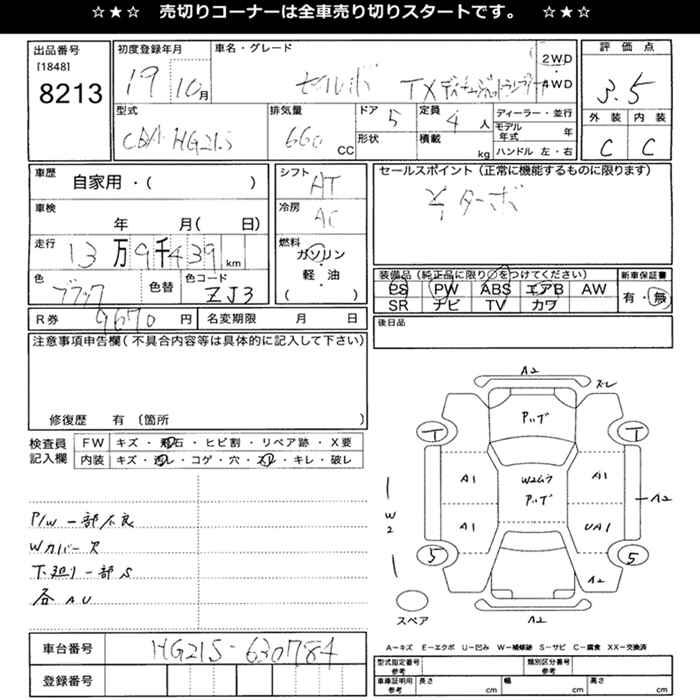 ☆★☆ 売切りコーナーは全車売り切りスタートです。 ☆★☆
出品番号
[1848]
8213
初度登録年月
19 10月
車名・グレード
セルボ TX
2WD
4WD
評価点
3.5
外装 内装
C C
型式
CBA-HG21S
排気量
660 CC
ドア 5
形状
定員 4 人
積載 kg
ディーラー・並行
モデル年式 年
ハンドル 左・右
車歴
自家用・( )
車検
年 月( 日)
走行
13万9千439km
色
ブラック
色替
色コード
ZJ3
シフト
AT
冷房
AC
燃料
ガソリン
軽・油
( )
セールスポイント(正常に機能するものに限ります)
ターボ
装備品(純正品に限り○をつけてください)
PS PW ABS エアB AW
SR ナビ TV カワ
新車保証書
有・無
後日品
R券 9670 円
名変期限 月 日
注意事項申告欄(不具合内容等は具体的に記入して下さい)
修復歴 有(箇所 )
検査員記入欄
FW キズ・飛石・ヒビ割・リペア跡・X要
内装 キズ・汚レ・コゲ・穴・スレ・キレ・破レ
P/W 一部不良
Wカバー欠
下廻り一部S
各AU
A2
スレ
T
T
A1
A1
W2ムラ
A1
UA1
A2
W2
5
5
A2
スペア
A2
A−キズ E−エクボ U−凹み W−補修跡 S−サビ C−腐食 XX−交換済
車台番号
HG21S-630784
登録番号
型式指定番号 参考
類別区分番号 参考
車庫証明用 参考
長さ cm
幅 cm
高さ cm